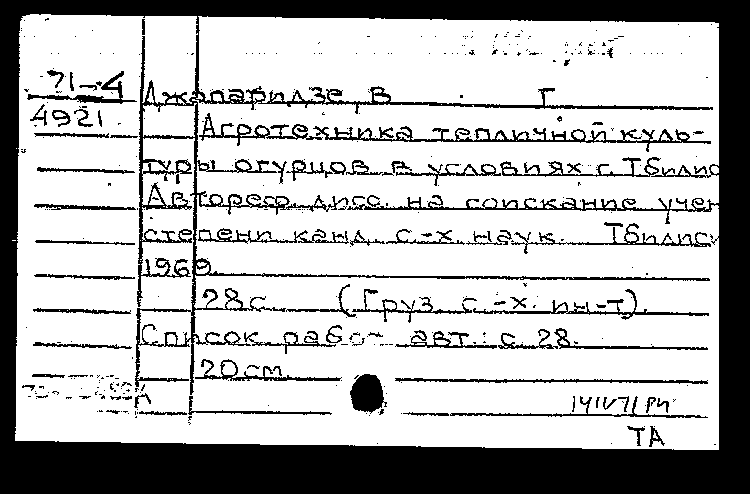 71-4
4921
Джапаридзе, В Г
Агротехника тепличной куль-
туры огурцов в условиях г. Тбилис
Автореф. дисс. на соискание учен
степени канд. с.-х. наук. Тбилиси
1969.
28 с. (Груз. с.-х. ин-т).
Список работ авт.: с. 28.
20 см.
ТА